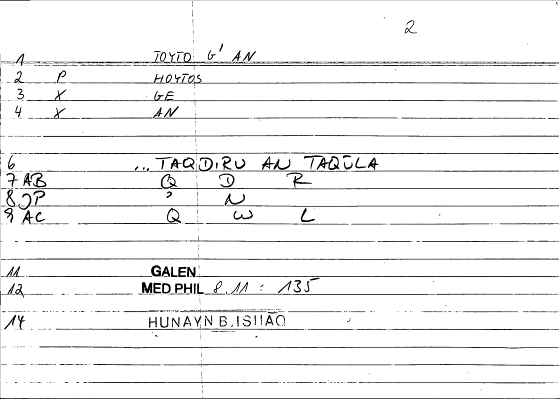 2
1 TOYTO G' AN
2 P HOYTOS
3 X GE
4 X AN
6 ... TAQDIRU AN TAQŪLA
7 AB Q D R
8 JP ' N
9 AC Q W L
11 GALEN
12 MED PHIL 8.11 : 135
14 HUNAYN B. ISHAQ